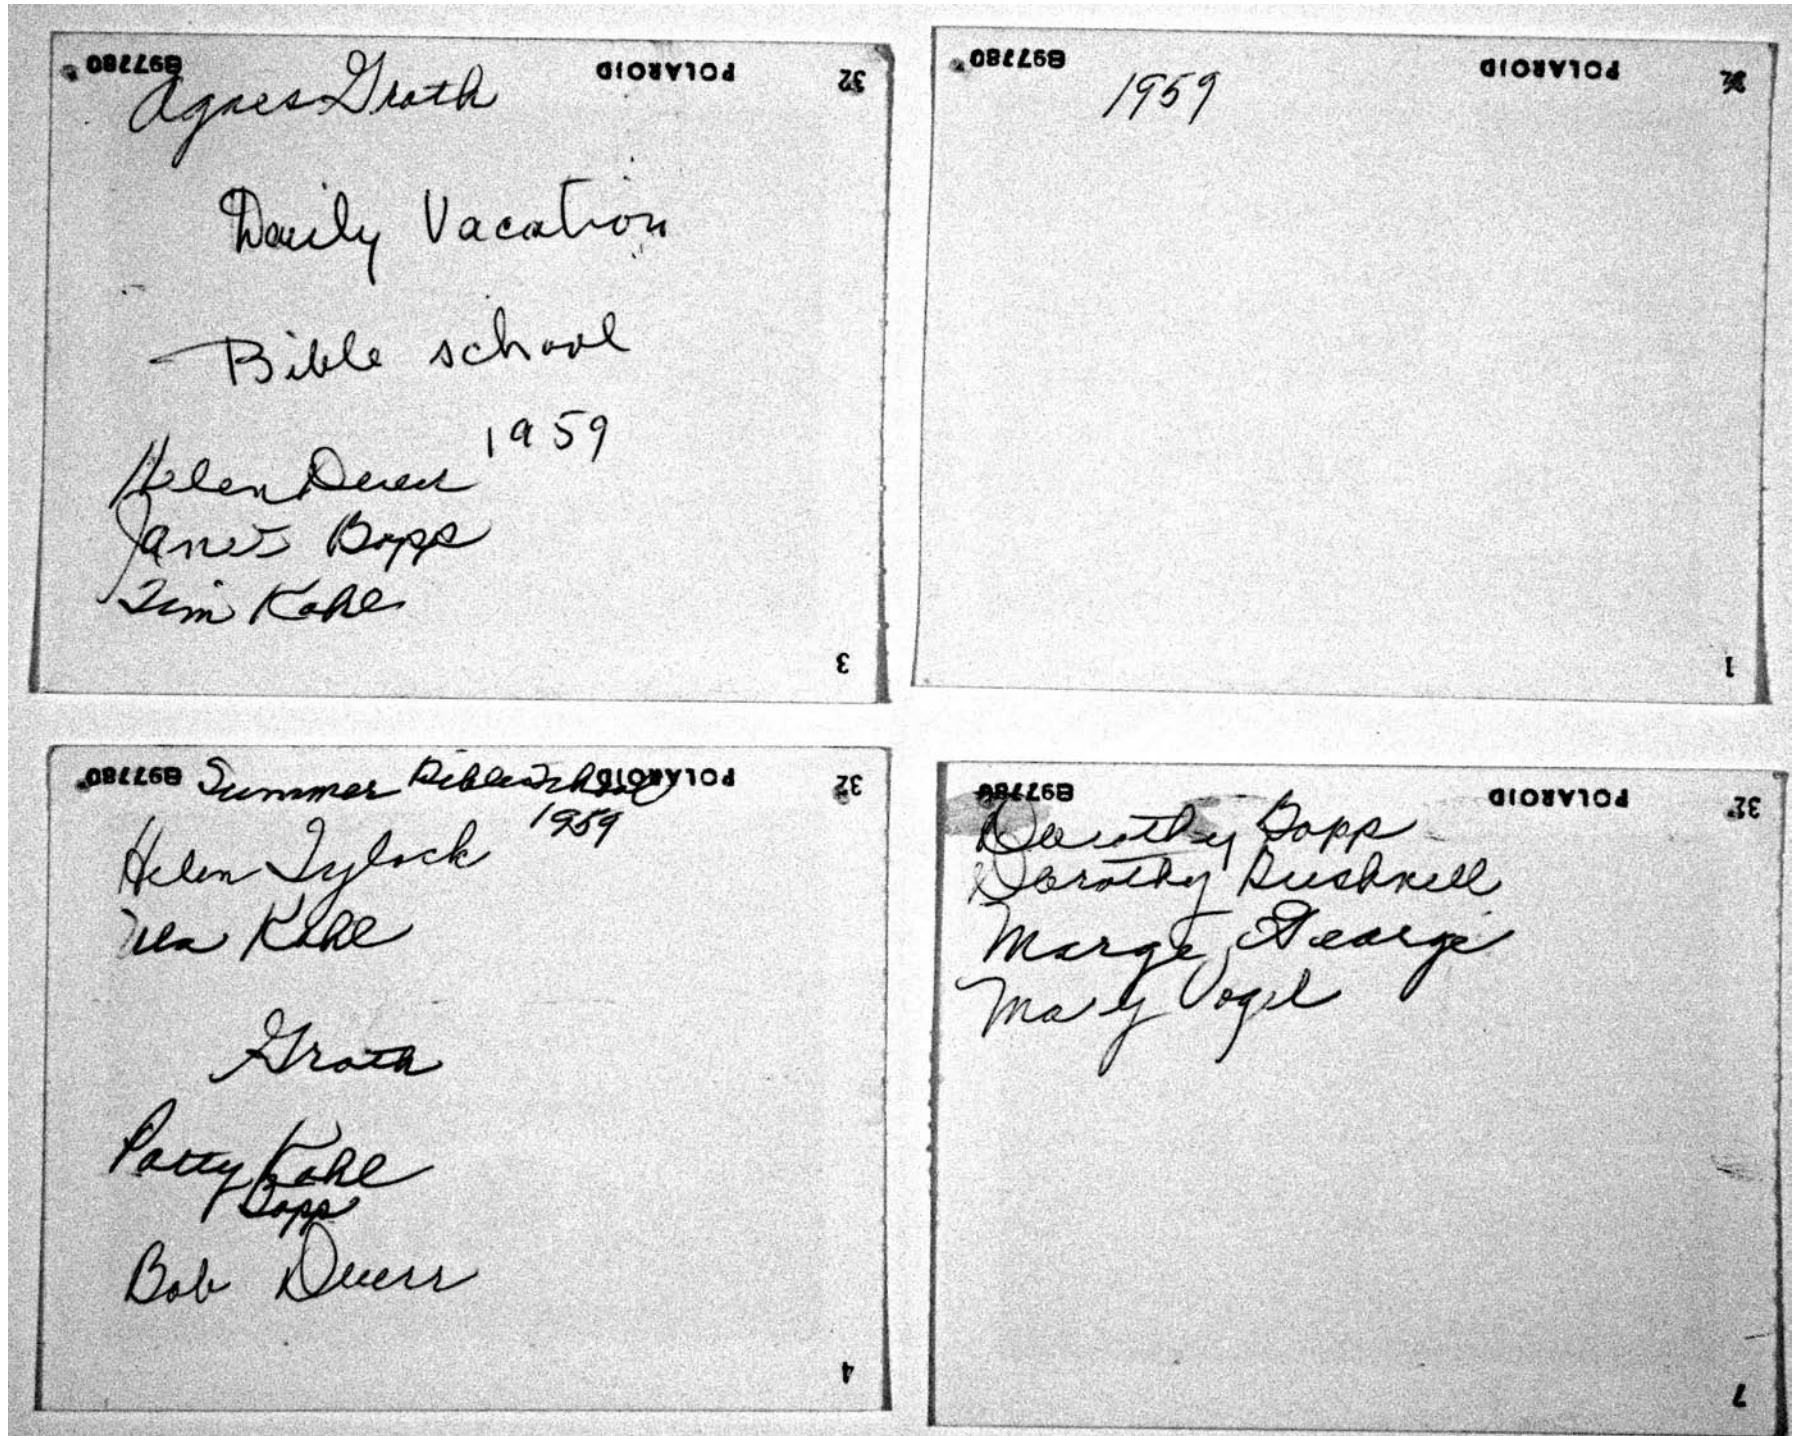 897780 POLAROID 32
Agnes Groth
Daily Vacation
Bible school
1959
Helen Duerr
Janis Bopp
Tim Kohl
3
897780 POLAROID 32
1959
1
897780 POLAROID 32
Summer Bible School
1959
Helen Tylock
Kohl
Groth
Patty Kohl
Bopp
Bob Duerr
4
897780 POLAROID 32
Dorothy Bopp
Dorothy Bushnell
Marge George
Mary Vogel
7